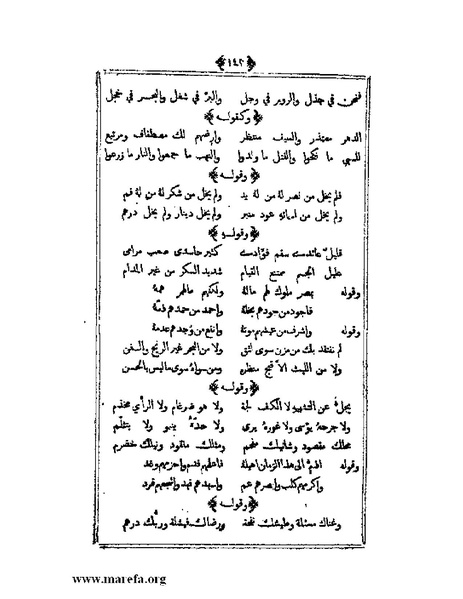 ﴿١٤٢﴾
فنحن في جذل والروم في وجل والبرّ في شغل والبحر في خجل
﴿وكقوله﴾
الدهر معتذر والسيف منتظر وارضهم لك مصطاف ومرتبع
للسبي ما نكحوا والقتل ما ولدوا والنهب ما جمعوا والنار ما زرعوا
﴿وقوله﴾
فلم يخل من نصر له من له يد ولم يخل من شكر له من له فم
ولم يخل من اسمائه عود منبر ولم يخل دينار ولم يخل درهم
﴿وقوله﴾
قليل عائدي سقم فؤادي كثير حاسدي صعب مرامي
عليل الجسم ممتنع القيام شديد السكر من غير المدام
وقوله بمصر ملوك لهم ماله ولكنهم مالهم همه
فاجود من جودهم بخله واحمد من حمدهم ذمّه
وقوله واشرف من عيشهم موته وانفع من وجدهم عدمه
لم نفتقد بك من مزن سوى لثق ولا من البحر غير الريح والسفن
ولا من الليث الاّ قبح منظره ومن سواه سوى ماليس بالحسن
﴿وقوله﴾
يجلّ عن التشبيه لا الكف لجة ولا هو ضرغام ولا الرأي مخذم
ولا جرحه يؤسى ولا غوره يرى ولا حدّه ينبو ولا يتثلّم
محلك مقصود وشانيك مفحم ومثلك مفقود ونيلك خضرم
وقوله اذمّ الى هذا الزمان اهيله فاعلمهم فدم واحزمهم وغد
واكرمهم كلب وابصرهم عم واسهدهم فهد واشجعهم قرد
﴿وقوله﴾
وغناك مسئلة وطيشك نفخة ورضاك فيشلة وربّك درهم
www.marefa.org